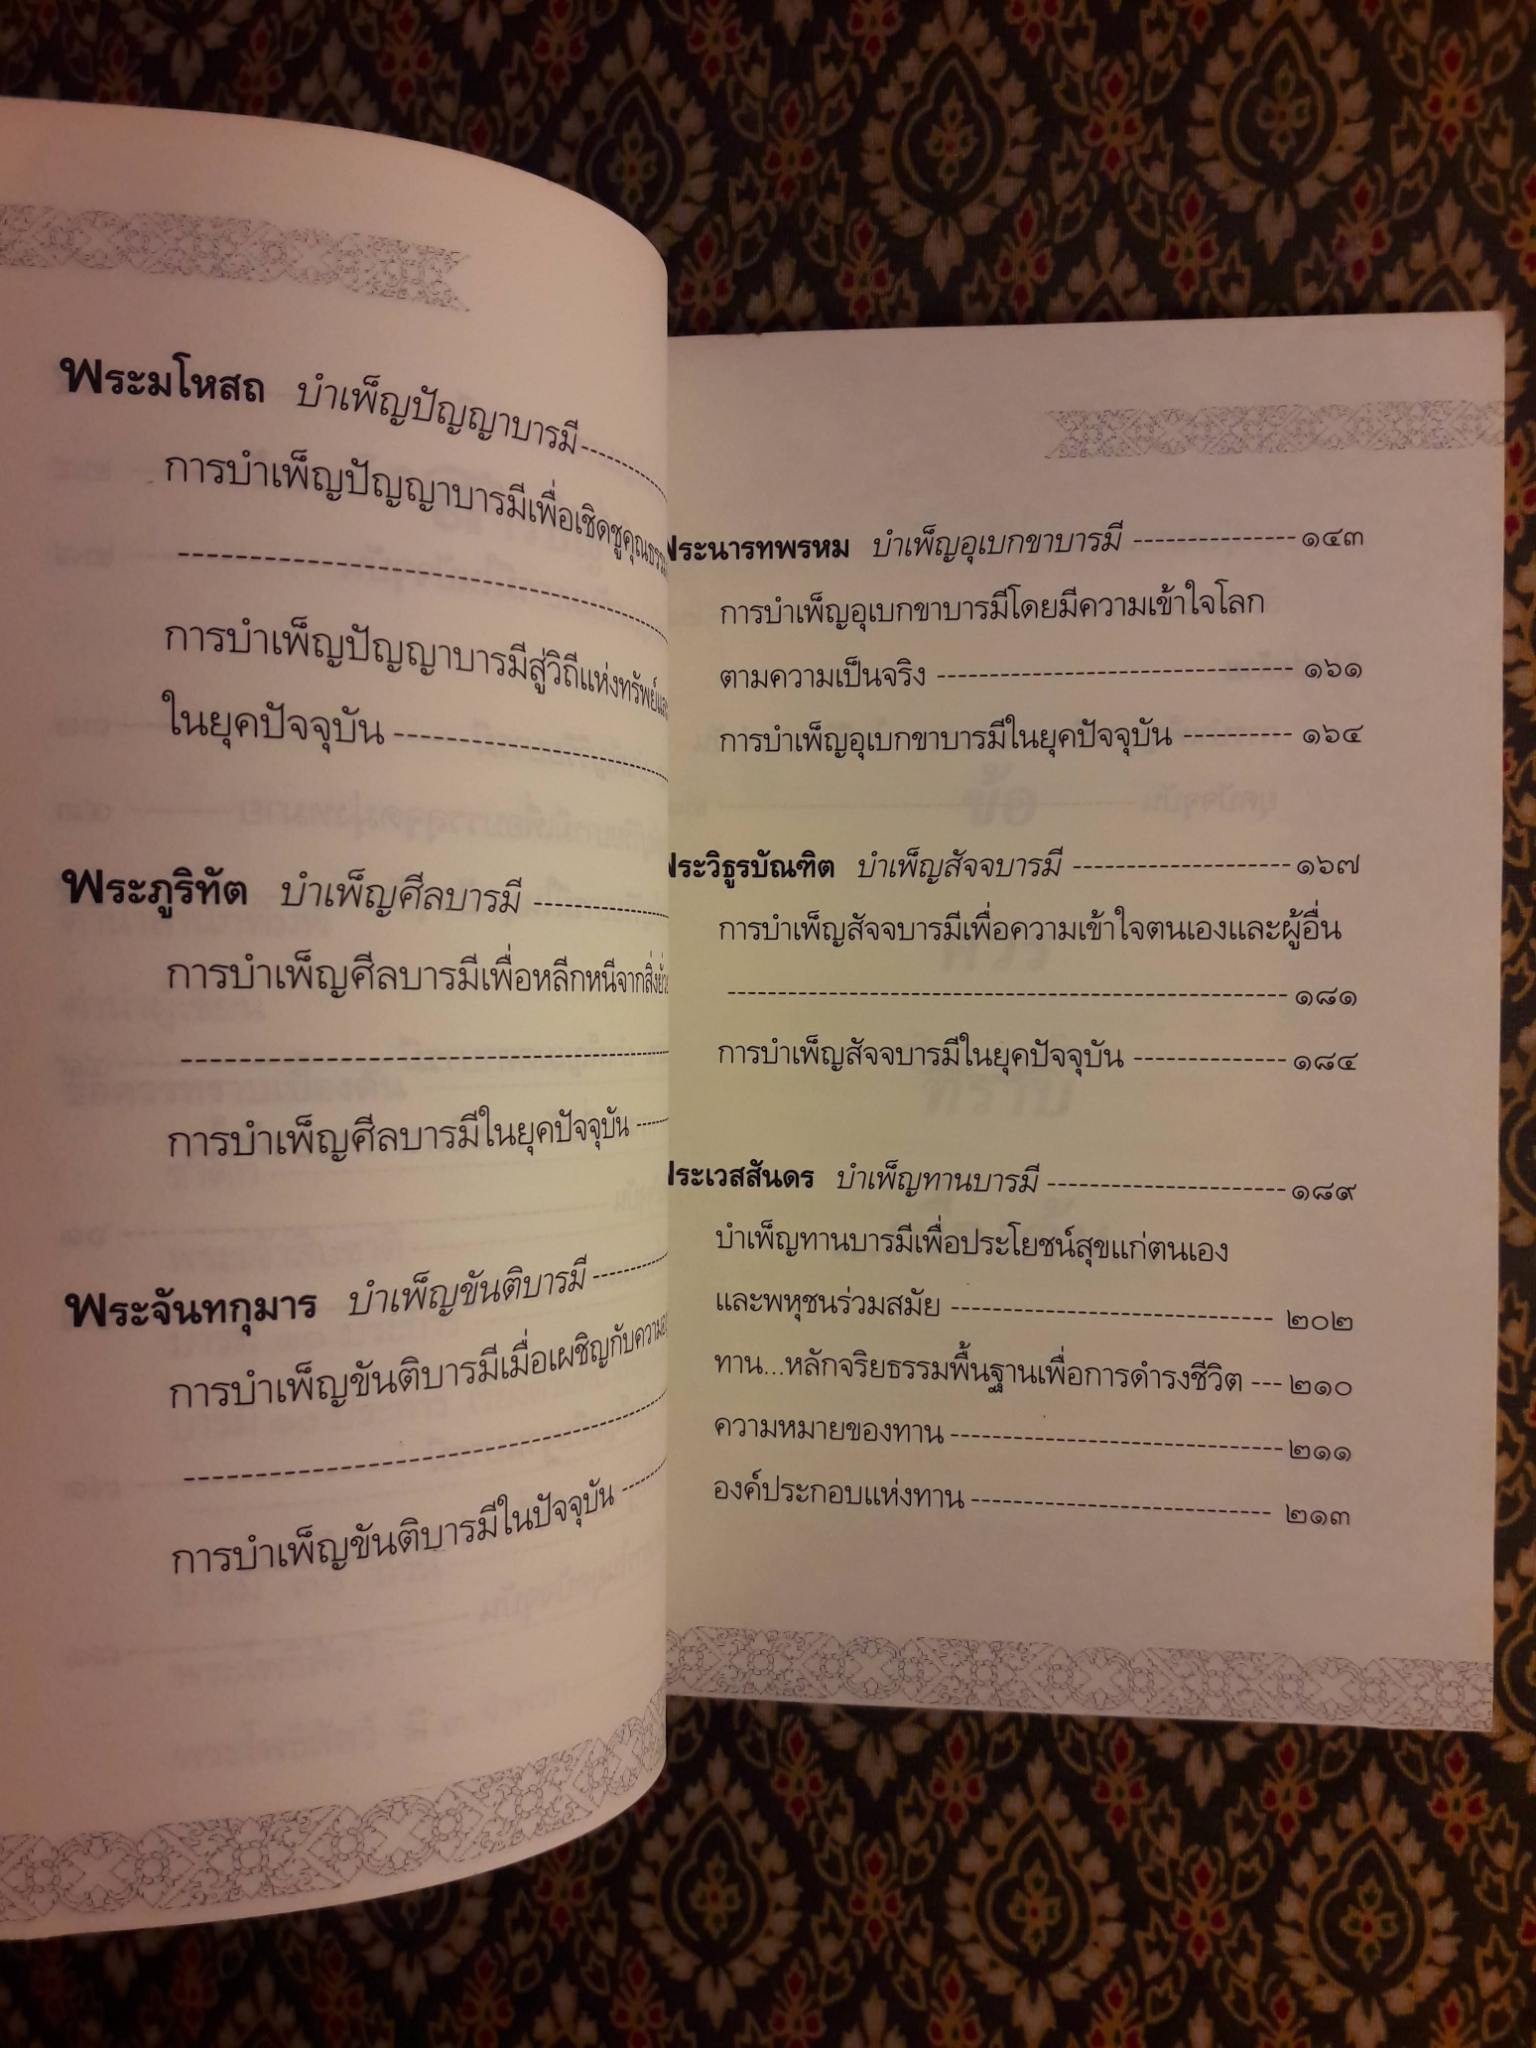 พระมโหสถ บำเพ็ญปัญญาบารมี
การบำเพ็ญปัญญาบารมีเพื่อเชิดชูคุณธรรม
การบำเพ็ญปัญญาบารมีสู่วิถีแห่งทรัพย์
ในยุคปัจจุบัน
พระภูริทัต บำเพ็ญศีลบารมี
การบำเพ็ญศีลบารมีเพื่อหลีกหนีจาก
การบำเพ็ญศีลบารมีในยุคปัจจุบัน
พระจันทกุมาร บำเพ็ญขันติบารมี
การบำเพ็ญขันติบารมีเมื่อเผชิญกับ
การบำเพ็ญขันติบารมีในปัจจุบัน
พระนารทพรหม บำเพ็ญอุเบกขาบารมี ---------------๑๔๓
การบำเพ็ญอุเบกขาบารมีโดยมีความเข้าใจโลก
ตามความเป็นจริง --------------------------------- ๑๖๑
การบำเพ็ญอุเบกขาบารมีในยุคปัจจุบัน ---------- ๑๖๔
พระวิธูรบัณฑิต บำเพ็ญสัจจบารมี --------------------๑๖๗
การบำเพ็ญสัจจบารมีเพื่อความเข้าใจตนเองและผู้อื่น
---------------------------------------------------- ๑๘๑
การบำเพ็ญสัจจบารมีในยุคปัจจุบัน --------------๑๘๔
พระเวสสันดร บำเพ็ญทานบารมี ----------------------๑๘๙
บำเพ็ญทานบารมีเพื่อประโยชน์สุขแก่ตนเอง
และพหุชนร่วมสมัย ------------------------------ ๒๐๒
ทาน...หลักจริยธรรมพื้นฐานเพื่อการดำรงชีวิต ---๒๑๐
ความหมายของทาน -------------------------------๒๑๑
องค์ประกอบแห่งทาน ---------------------------- ๒๑๓